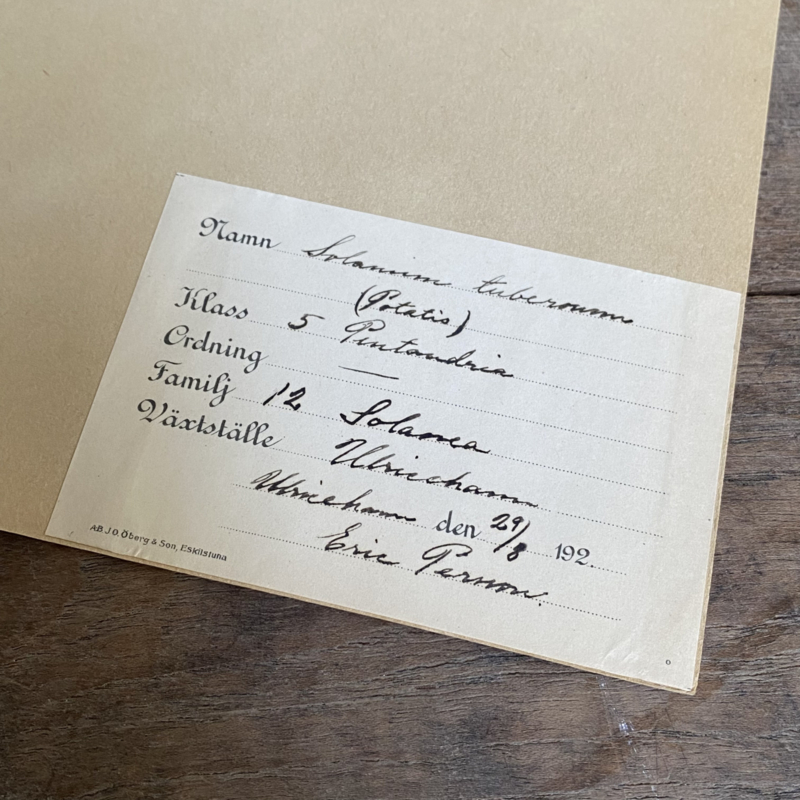 Namn Solanum tuberosum
(Potatis)
Klass 5 Pentandria
Ordning —
Familj 12 Solanea
Växtställe Ulricehamn
Ulricehamn den 29/8 192.
Eric Person.
AB. J.O. Öberg & Son, Eskilstuna